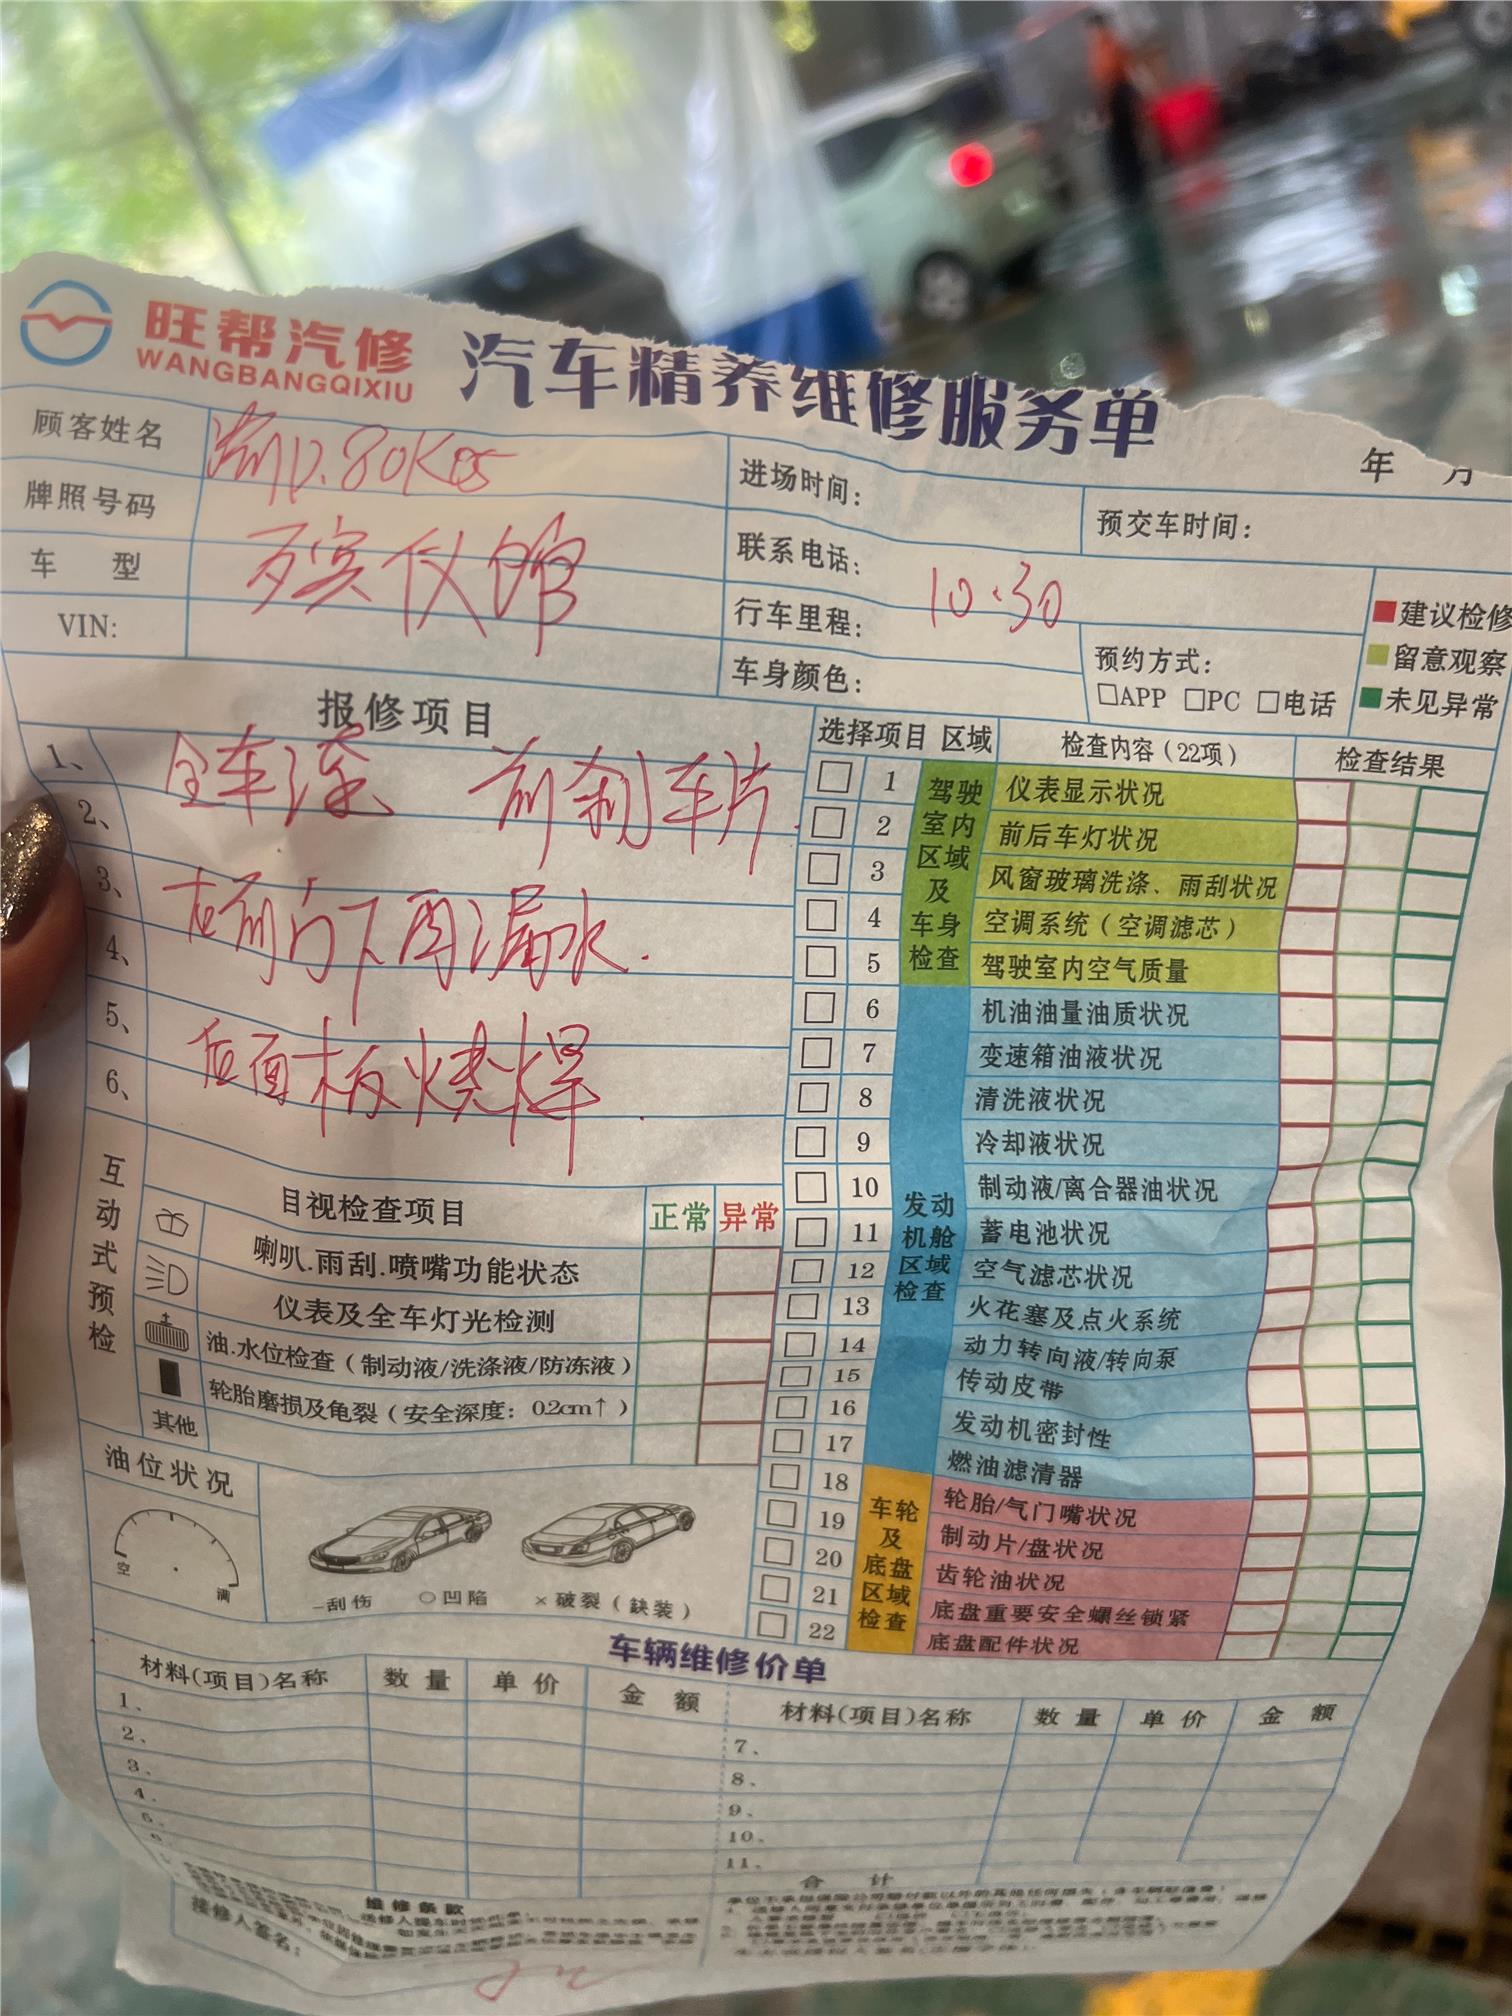 旺帮汽修
WANGBANGQIXIU
汽车精养维修服务单
年 月
顾客姓名
牌照号码
车 型
VIN:
D.80K05
殡仪馆
进场时间:
预交车时间:
联系电话:
行车里程:
10:30
车身颜色:
预约方式:
□APP □PC □电话
建议检修
留意观察
未见异常
报修项目
1、
2、
3、
4、
5、
6、
全车漆 前刹车片
右前门下雨漏水.
后面板烧焊.
选择项目 区域
检查内容(22项)
检查结果
驾驶室内区域及车身检查
1 仪表显示状况
2 前后车灯状况
3 风窗玻璃洗涤、雨刮状况
4 空调系统(空调滤芯)
5 驾驶室内空气质量
发动机舱区域检查
6 机油油量油质状况
7 变速箱油液状况
8 清洗液状况
9 冷却液状况
10 制动液/离合器油状况
11 蓄电池状况
12 空气滤芯状况
13 火花塞及点火系统
14 动力转向液/转向泵
15 传动皮带
16 发动机密封性
17 燃油滤清器
车轮及底盘区域检查
18 轮胎/气门嘴状况
19 制动片/盘状况
20 齿轮油状况
21 底盘重要安全螺丝锁紧
22 底盘配件状况
互动式预检
目视检查项目
正常 异常
喇叭.雨刮.喷嘴功能状态
仪表及全车灯光检测
油.水位检查(制动液/洗涤液/防冻液)
轮胎磨损及龟裂(安全深度:0.2cm↑)
其他
油位状况
空
满
–刮伤 ○凹陷 ×破裂(缺装)
车辆维修价单
材料(项目)名称 数量 单价 金额
材料(项目)名称 数量 单价 金额
1、
2、
3、
4、
5、
6、
7、
8、
9、
10、
11、
合 计
维修条款
接修人签名: